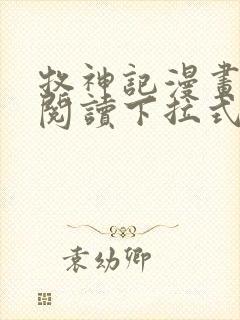 牧神記漫畫
閱讀下拉式
袁幼卿